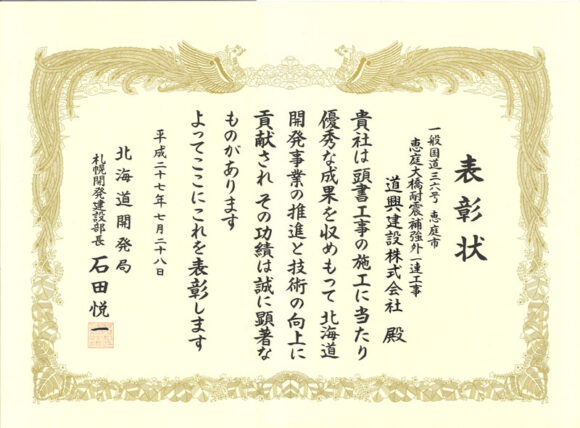 表彰状
一般国道三六号 恵庭市
恵庭大橋耐震補強外一連工事
道興建設株式会社 殿
貴社は頭書工事の施工に当たり
優秀な成果を収めもって 北海道
開発事業の推進と技術の向上に
貢献され その功績は誠に顕著な
ものがあります
よってここにこれを表彰します
平成二十七年七月二十八日
北海道開発局
札幌開発建設部長 石田悦一